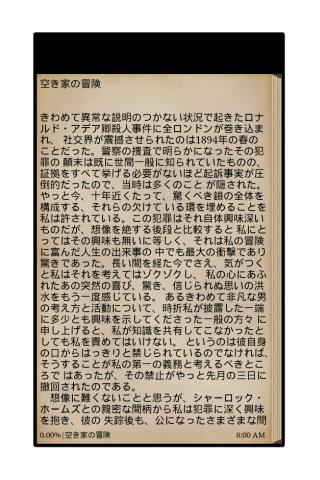 空き家の冒険
きわめて異常な説明のつかない状況で起きたロナ
ルド・アデア卿殺人事件に全ロンドンが巻き込ま
れ、 社交界が震撼させられたのは1894年の春の
ことだった。警察の捜査で明らかになったその犯
罪の 顛末は既に世間一般に知られていたものの、
証拠をすべて挙げる必要がないほど起訴事実が圧
倒的だったので、当時は多くのことが隠された。
やっと今、十年近くたって、驚くべき鎖の全体を
構成する、それらの欠けている環を埋めることを
私は許されている。この犯罪はそれ自体興味深い
ものだが、想像を絶する後段と比較すると 私にと
ってはその興味も無いに等しく、それは私の冒険
に富んだ人生の出来事の 中でも最大の衝撃であり
驚きであった。長い間を経た今でさえ、気がつく
と私はそれを考えてはゾクゾクし、 私の心にあふ
れたあの突然の喜び、驚き、信じられぬ思いの洪
水をもう一度感じている。 あるきわめて非凡な男
の考え方と活動について、時折私が披露した一端
に多少とも興味を示してくださった一般の方々 に
申し上げると、私が知識を共有してこなかったと
しても私を責めてはいけない。 というのは彼自身
の口からはっきりと禁じられているのでなければ、
そうすることが私の第一の義務と考えるべきとこ
ろで はあったが、その禁止がやっと先月の三日に
撤回されたのである。
想像に難くないことと思うが、シャーロック・
ホームズとの親密な間柄から私は犯罪に深く興味
を抱き、彼の 失踪後も、公になったさまざまな問
0.00% | 空き家の冒険
8:00 AM